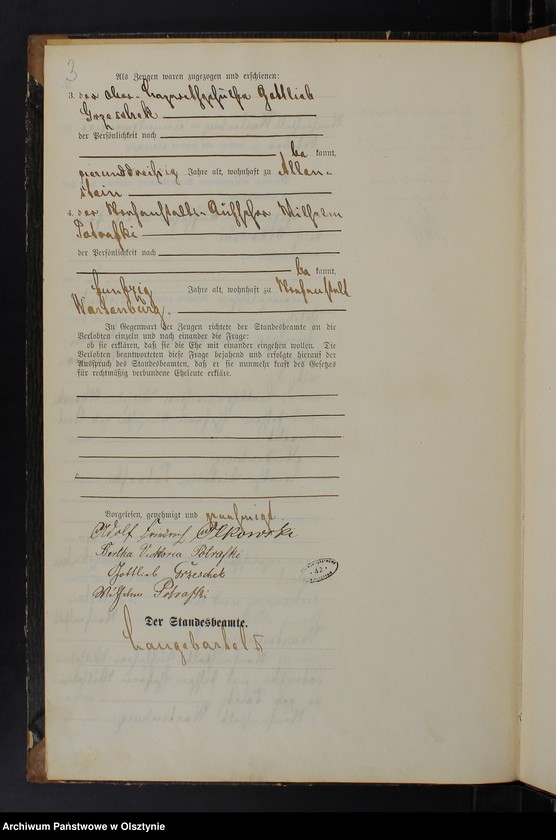 3
Als Zeugen waren zugezogen und erschienen:
3. der Ober-Lazarethgehülfe Gottlieb
Grzeschek
der Persönlichkeit nach
be kannt,
vierunddreißig Jahre alt, wohnhaft zu Allen-
stein
4. der Aufseher Wilhelm
Potrafki
der Persönlichkeit nach
be kannt,
funfzig Jahre alt, wohnhaft zu
Wartenburg.
In Gegenwart der Zeugen richtete der Standesbeamte an die
Verlobten einzeln und nach einander die Frage:
ob sie erklären, daß sie die Ehe mit einander eingehen wollen. Die
Verlobten beantworteten diese Frage bejahend und erfolgte hierauf der
Ausspruch des Standesbeamten, daß er sie nunmehr kraft des Gesetzes
für rechtmäßig verbundene Eheleute erkläre.
Vorgelesen, genehmigt und
Adolf Friedrich Olkowski
Bertha Viktoria Potrafki
Gottlieb Grzeschek
Wilhelm Potrafki
Der Standesbeamte.
Archiwum Państwowe w Olsztynie